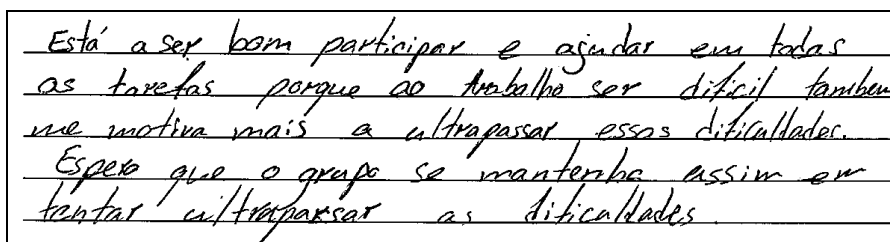 Está a ser bom participar e ajudar em todas
as tarefas porque ao trabalho ser dificil tambem
me motiva mais a ultrapassar essas dificuldades.
Espero que o grupo se mantenha assim em
tentar ultrapassar as dificuldades